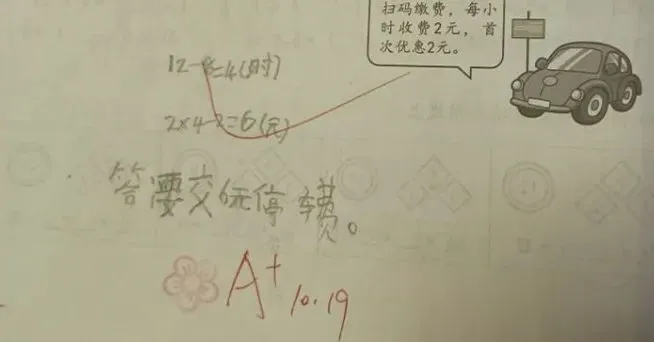 扫码缴费，每小
时收费2元，首
次优惠2元。
12-8=4(时)
2×4-2=6(元)
答要交6元停车费。
A+
10.19